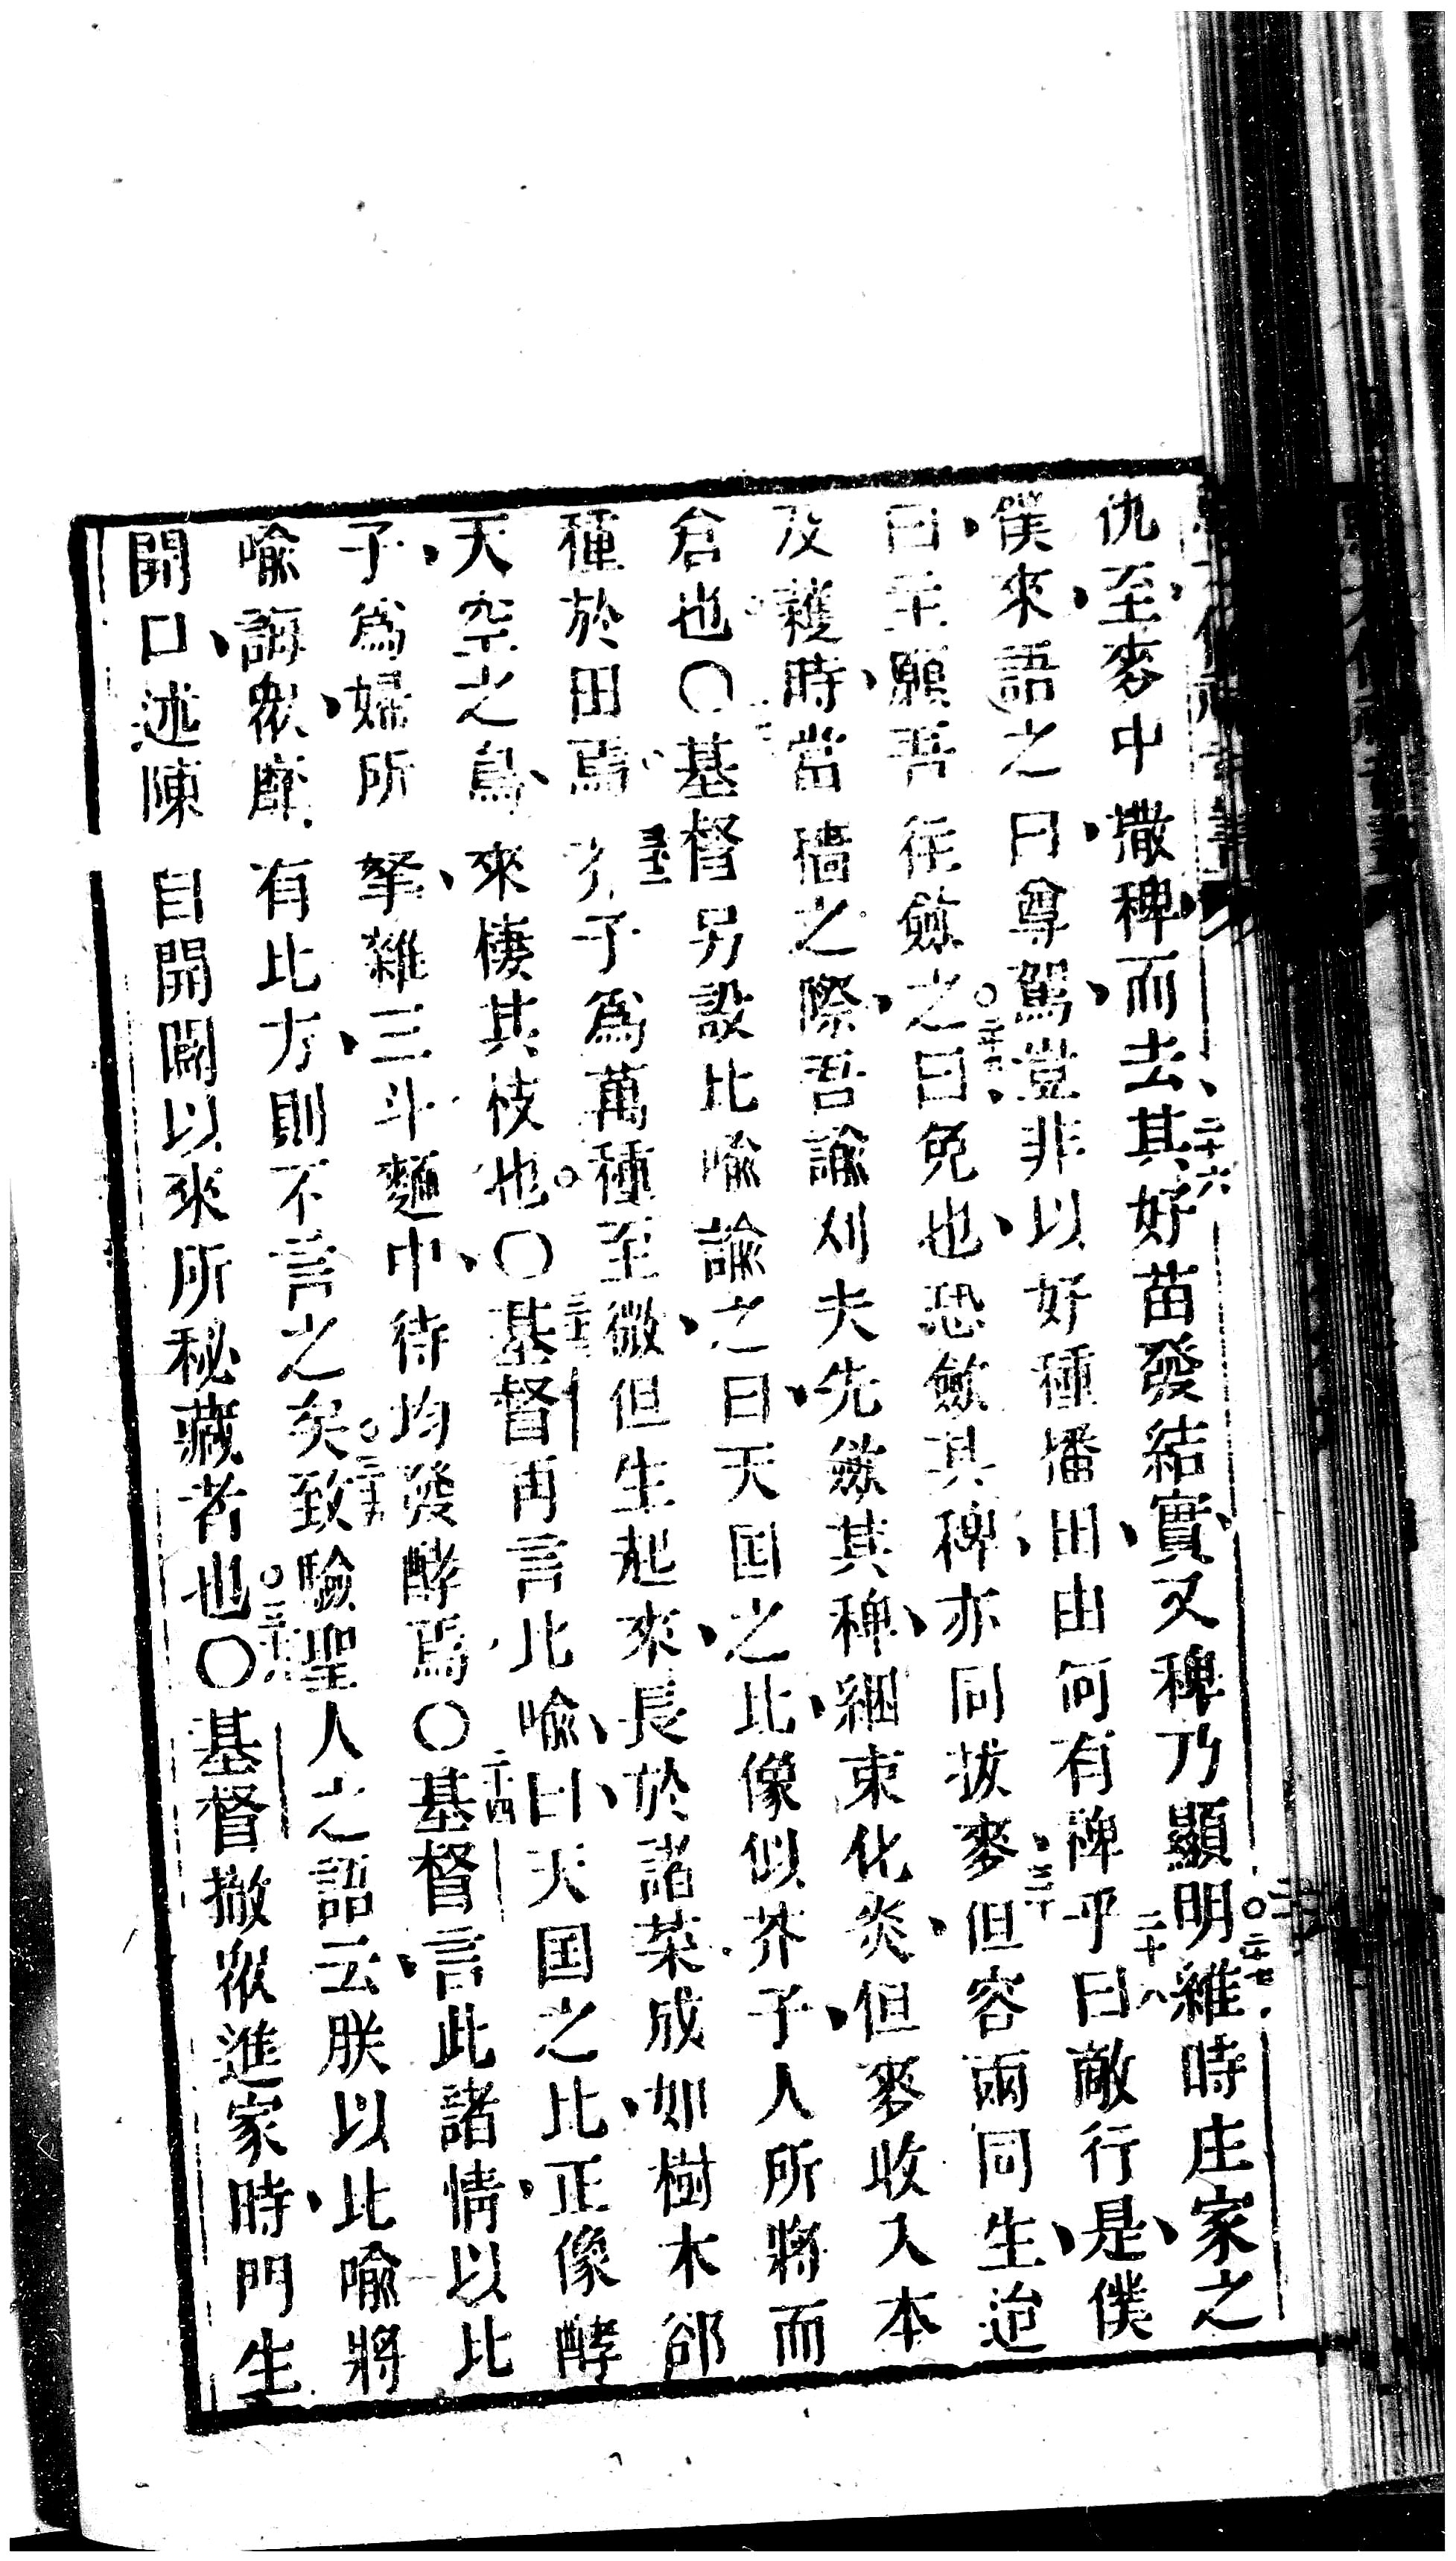 仇、至麥中撒稗、而去、二十六其好苗發結實、又稗乃顯明、○二十七維時庄家之
僕來、語之曰、尊駕、豈非以好種播田、由何有稗乎、二十八曰敵行是、僕
曰、主願吾往斂之、○二十九曰免也、恐斂其稗、亦同拔麥、三十但容兩同生、迨
及穫時、當穡之際、吾諭刈夫先斂其稗、綑束化炎、但麥收入本
倉也。○基督另設比喻諭之曰、天国之比、像似芥子、人所將而
種於田焉、子為萬種至微、但生起來、長於諸菜、成如樹木、郤
天空之鳥、來棲其枝也。○三十三基督再言比喻、曰、天国之比、正像酵
子、為婦所拏、雜三斗麵中、待均發酵焉。○三十四基督言此諸情、以比
喻誨眾、靡有比方、則不言之矣。○三十五致驗聖人之語云、朕以比喻將
開口、述陳自開闢以來所秘藏者也。○三十六基督撇眾進家時、門生